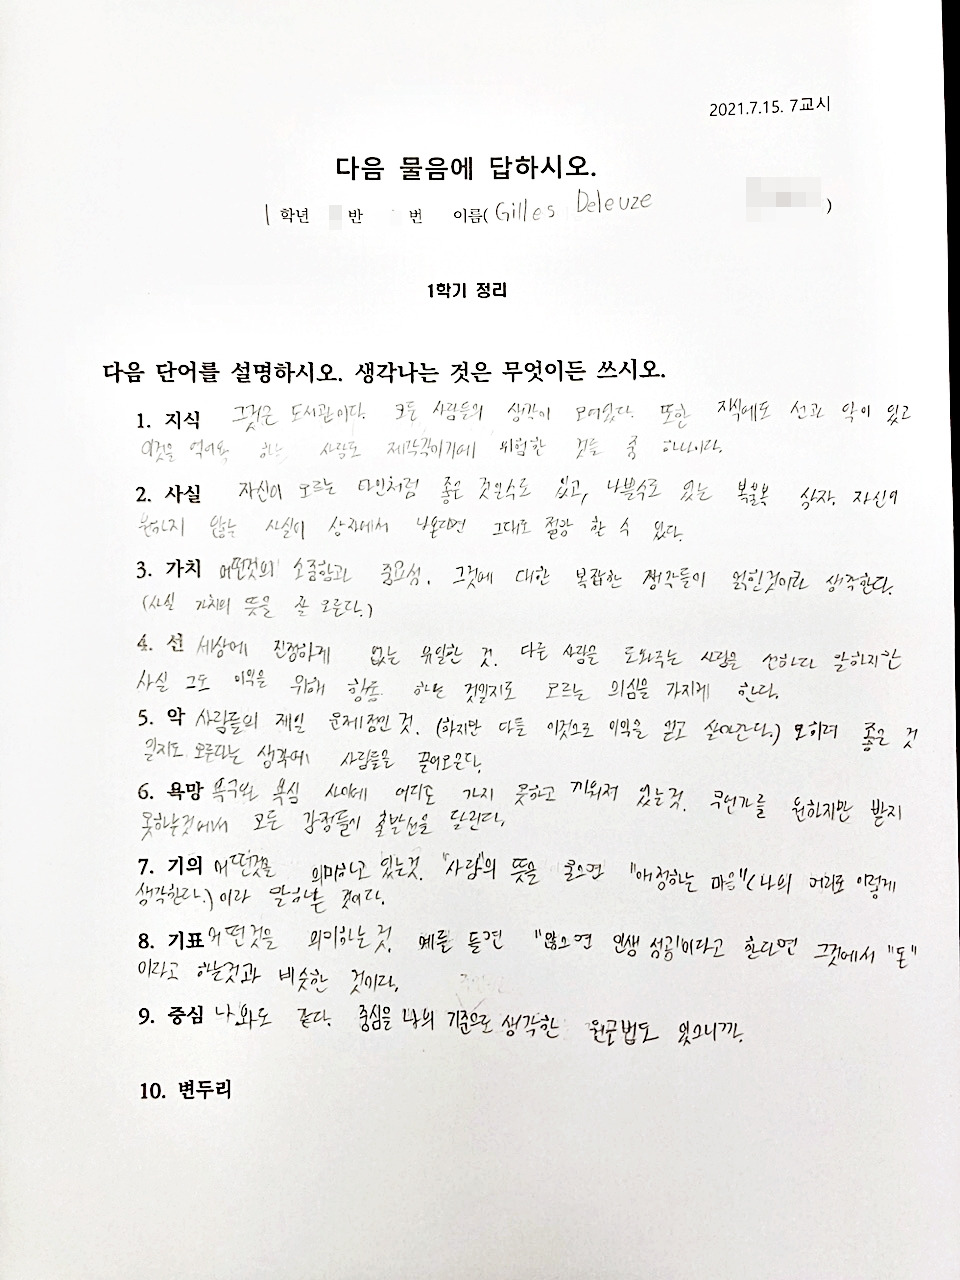 2021.7.15. 7교시
다음 물음에 답하시오.
1 학년 반 번 이름( Gilles Deleuze )
1학기 정리
다음 단어를 설명하시오. 생각나는 것은 무엇이든 쓰시오.
1. 지식 그것은 도서관이다. 모든 사람들의 생각이 모여있다. 또한 지식에도 선과 악이 있고
이것을 사람도 제각각이기에 위험한 것들 중 하나이다.
2. 사실 자신이 모르는 타인처럼 좋은 것일수도 있고, 나쁠수도 있는 복불복 상자. 자신이
원하지 않는 사실이 상자에서 나온다면 그대로 절망 할 수 있다.
3. 가치 어떤것의 소중함과 중요성. 그것에 대한 복잡한 생각들이 얽힌것이라 생각한다.
(사실 가치의 뜻을 잘 모른다.)
4. 선 세상에 진정하게 없는 유일한 것. 다른 사람을 도와주는 사람을 선하다 말하지만
사실 그도 이익을 위해 행동 하는 것일지도 모르는 의심을 가지게 한다.
5. 악 사람들의 제일 문제점인 것. (하지만 다들 이것으로 이익을 얻고 살아간다.) 오히려 좋은 것
일지도 모른다는 생각에 사람들을 끌어모은다.
6. 욕망 욕구와 욕심 사이에 어디도 가지 못하고 끼워져 있는것. 무언가를 원하지만 받지
못하는것에서 모든 감정들이 출발선을 달린다.
7. 기의 어떤것을 의미하고 있는것. "사랑"의 뜻을 물으면 "애정하는 마음"(나의 머리로 이렇게
생각한다.)이라 말하는 것이다.
8. 기표 어떤것을 의미하는 것. 예를 들면 "많으면 인생 성공"이라고 한다면 그것에서 "돈"
이라고 하는것과 비슷한 것이다.
9. 중심 나와도 같다. 중심을 나의 기준으로 생각한 원근법도 있으니까.
10. 변두리